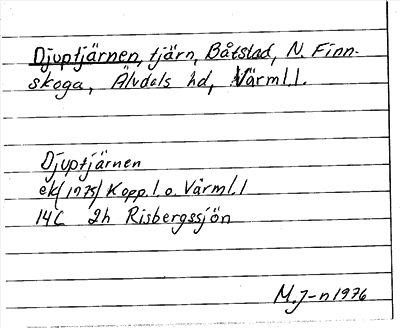 Djuptjärnen, tjärn, Båtstad, N. Finn-
skoga, Älvdals hd, Värml.l.
Djuptjärnen
ek/1975/Kopp.l o. Värml.l
14C 2h Risbergssjön
M.J-n 1976